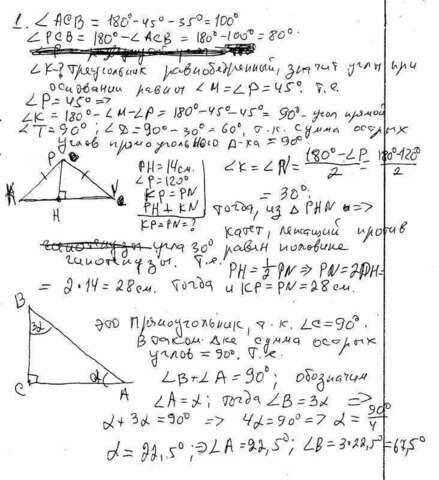 1. ∠ACB = 180°-45°-35°=100°
∠PCB = 180°-∠ACB = 180°-100°=80°
∠K-? Треугольник равнобедренный, значит углы при
основании равны ∠M=∠P=45°. т.е.
∠P=45° =>
∠K=180°-∠M-∠P=180°-45°-45°= 90°- угол прямой
∠T=90°; ∠D=90°-30°=60°, т.к. сумма острых
углов прямоугольного Δ-ка =90°
P
K
H
PH=14см.
∠P=120°
KP=PN
PH⊥KN
KP=PN=?
∠K=∠PN=(180°-∠P)/2=(180°-120°)/2
= 30°
Тогда, из ΔPHN =>
катет, лежащий против
угла 30° равен половине
гипотенузы. Т.е.
PH=1/2 PN => PN=2PH=
= 2·14=28см. Тогда и KP=PN=28см.
B
3α
C
α
A
это прямоугольник, т.к. ∠C=90°.
В таком Δке сумма острых
углов =90°. Т.е.
∠B+∠A=90°; обозначим
∠A=α; тогда ∠B=3α =>
α+3α=90° => 4α=90° => α=90°/4
α=22,5° ; => ∠A=22,5°; ∠B=3·22,5°=67,5°